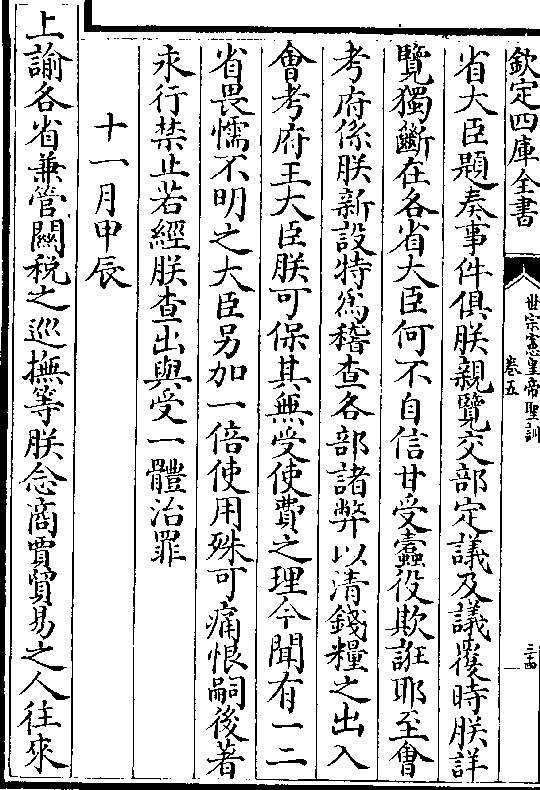 欽定四庫全書
世宗憲皇帝聖訓
卷五
三十四
省大臣題奏事件俱朕親覽交部定議及議覆時朕詳
覽獨斷在各省大臣何不自信甘受蠧役欺誑耶至㑹
考府係朕新設特為稽查各部諸弊以清錢糧之出入
㑹考府王大臣朕可保其無受使費之理今聞有一二
省畏懦不明之大臣另加一倍使用殊可痛恨嗣後著
永行禁止若經朕查出與受一體治罪
十一月甲辰
上諭各省兼管關稅之巡撫等朕念商賈貿易之人往來